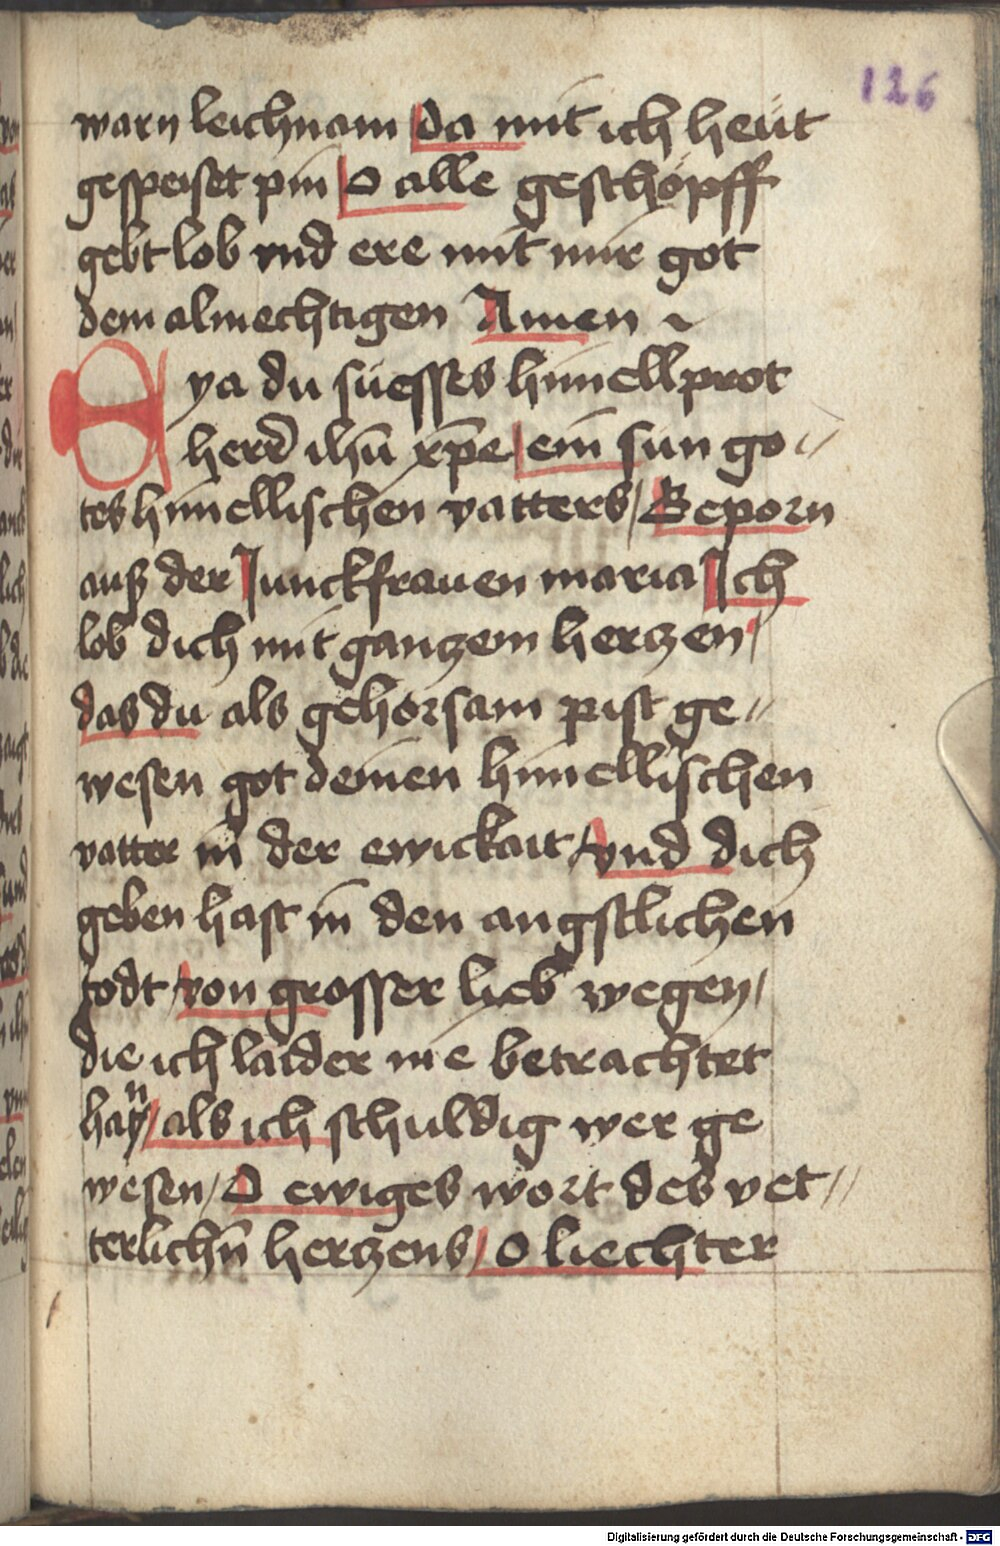 126
warn leichnam Da mit ich heüt
gespeiset pin O alle geschöpff
gebt lob vnd ere mit mir got
dem almechtigen Amen ~
Eya du süesses himellprot
herr ihū xp̄e ein sun go//
tes himellischen vatters / Geporn
auß der Junckfrauen maria Ich
lob dich mit ganczem herczen /
das du als gehorsam pist ge//
wesen got deinen himellischen
vatter in der ewickait / vnd dich
geben hast in den angstlichen
todt / von grosser lieb wegen /
die ich laider nie betrachtet
han / als ich schuldig wer ge
wesen / O ewiges wort des vet//
terlichn̄ herczens / O liechter
Digitalisierung gefördert durch die Deutsche Forschungsgemeinschaft - DFG